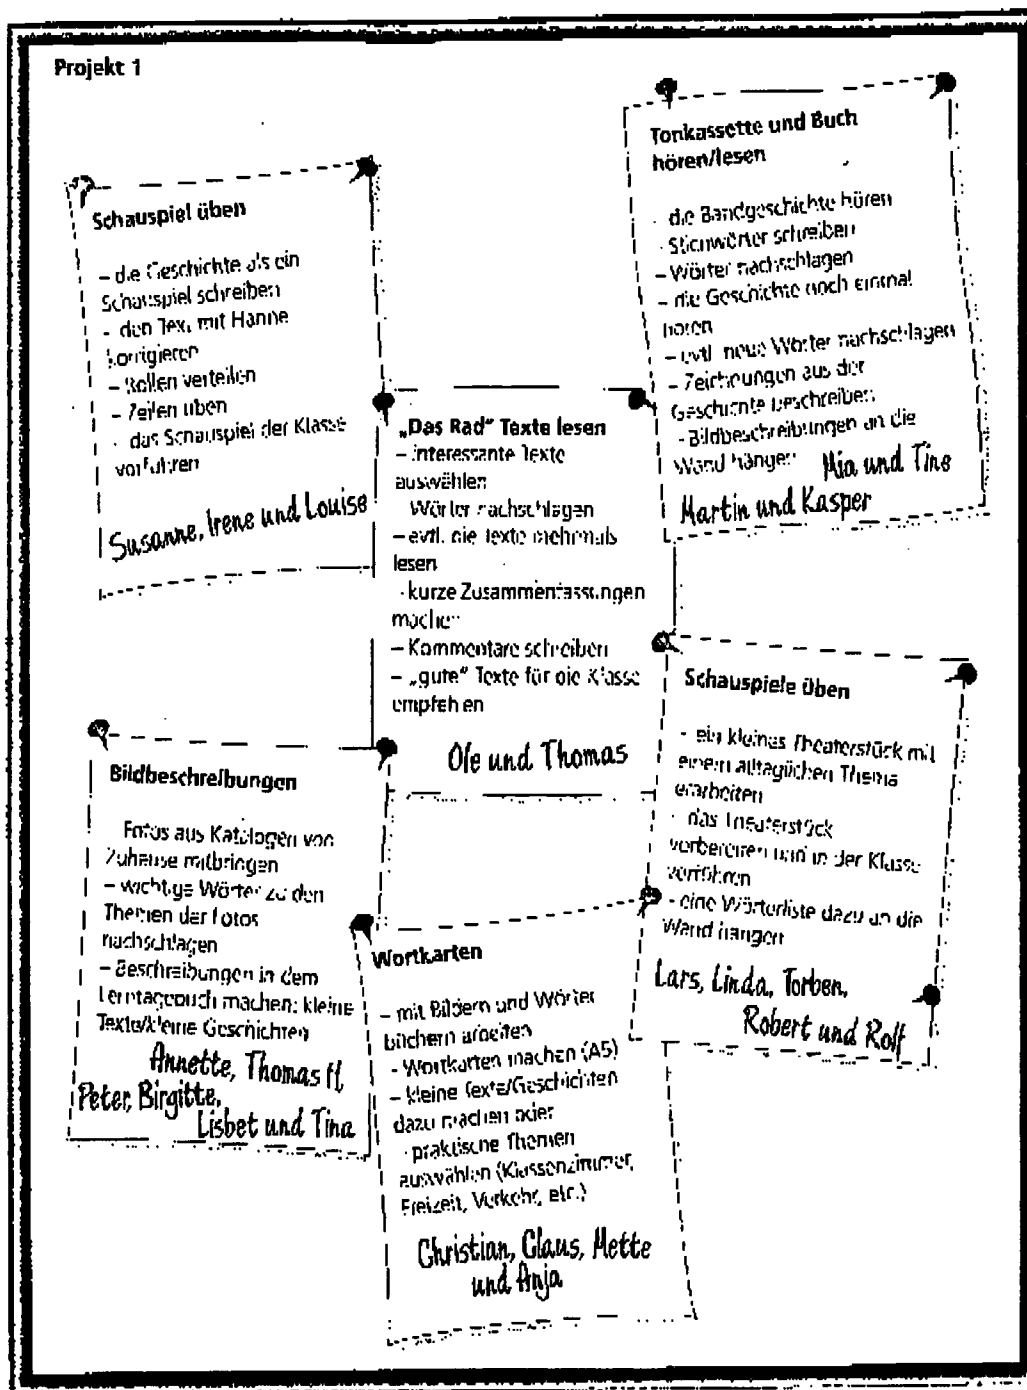 Projekt 1
Schauspiel üben
– die Geschichte als ein
Schauspiel schreiben
– den Text mit Hanne
korrigieren
– Rollen verteilen
– Zeilen üben
– das Schauspiel der Klasse
vorführen
Susanne, Irene und Louise
Tonkassette und Buch
hören/lesen
- die Bandgeschichte hören
- Stichwörter schreiben
– Wörter nachschlagen
– die Geschichte noch einmal
hören
– evtl. neue Wörter nachschlagen
– Zeichnungen aus der
Geschichte beschreiben
- Bildbeschreibungen an die
Wand hängen
Mia und Tine
Martin und Kasper
„Das Rad“ Texte lesen
– interessante Texte
auswählen
Wörter nachschlagen
– evtl. die Texte mehrmals
lesen
- kurze Zusammenfassungen
machen
– Kommentare schreiben
– „gute“ Texte für die Klasse
empfehlen
Ole und Thomas
Schauspiele üben
- ein kleines Theaterstück mit
einem alltäglichen Thema
erarbeiten
- das Theaterstück
vorbereiten und in der Klasse
vorführen
- eine Wörterliste dazu an die
Wand hängen
Lars, Linda, Torben,
Robert und Rolf
Bildbeschreibungen
Fotos aus Katalogen von
Zuhause mitbringen
– wichtige Wörter zu den
Themen der Fotos
nachschlagen
– Beschreibungen in dem
Lerntagebuch machen: kleine
Texte/kleine Geschichten
Annette, Thomas
Peter, Birgitte,
Lisbet und Tina
Wortkarten
– mit Bildern und Wörter
büchern arbeiten
- Wortkarten machen (A5)
– kleine Texte/Geschichten
dazu machen oder
- praktische Themen
auswählen (Klassenzimmer,
Freizeit, Verkehr, etc.)
Christian, Claus, Mette
und Anja